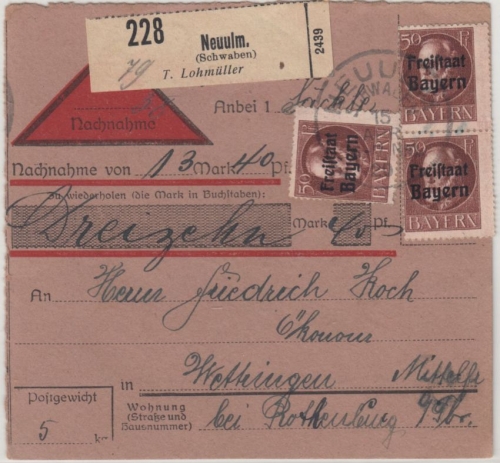 228
Neuulm.
(Schwaben)
2439
79
T. Lohmüller
Anbei 1
Nachnahme
Nachnahme von 13 Mark 40 Pf.
zu wiederholen (die Mark in Buchstaben):
Dreizehn Mark 40 Pf.
An Herrn Friedrich Koch
Ökonom
in Wettringen Mittelfr
Wohnung
(Straße und
Hausnummer)
bei Rothenburg
Postgewicht
5 kg
50 Pf
Freistaat
Bayern
BAYERN
50 Pf
Freistaat
Bayern
BAYERN
50 Pf
Freistaat
Bayern
BAYERN
15